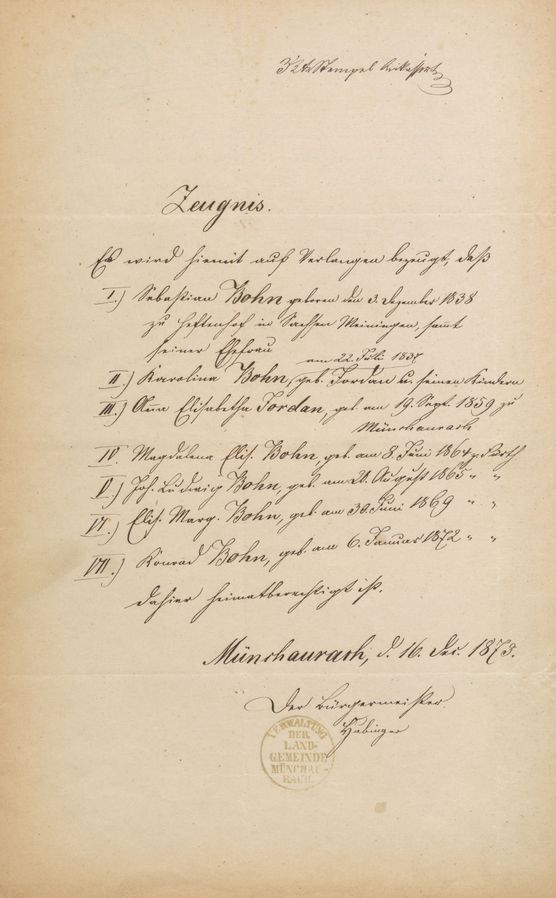 Stempel
Zeugnis.
Es wird hiemit auf Verlangen bezeugt, daß
I.) Sebastian Bohn geboren den 3. Dezember 1838
zu Heftenhof in Sachsen Meiningen, sammt
seiner Ehefrau
am 22. Juli 1837
II.) Karolina Bohn, geb. Jordan u. seinen Kindern
III.) Ana Elisabetha Jordan, geb. am 19. Sept. 1859 zu
Münchaurach
IV. Magdalena Elis. Bohn, geb. am 8. Juni 1864 z. Fürth
V.) Joh. Ludwig Bohn, geb. am 28. August 1865 " "
VI.) Elis. Marg. Bohn, geb. am 30. Juni 1869 " "
VII.) Konrad Bohn, geb. am 6. Januar 1872 " "
dahier heimatberechtigt ist.
Münchaurach, d. 16. Dec. 1873.
Der Bürgermeister
Hubinger
VERWALTUNG
DER
LAND-
GEMEINDE
MÜNCHAU-
RACH.